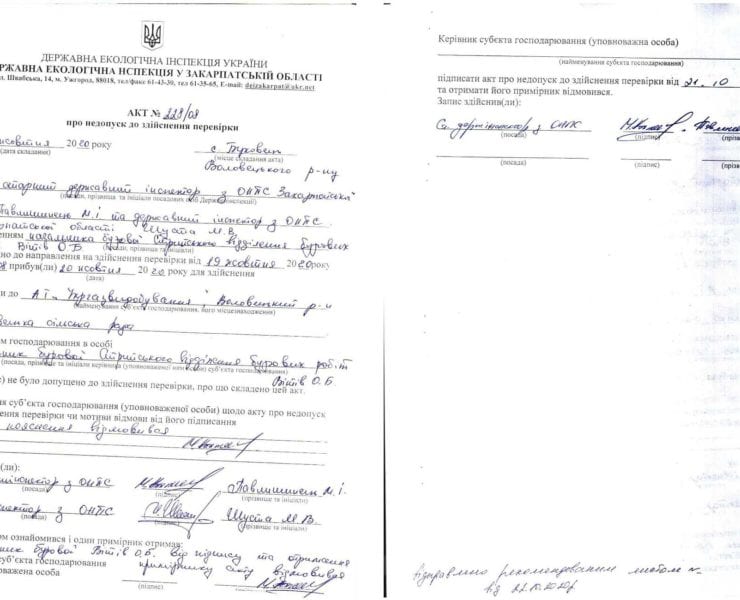 ДЕРЖАВНА ЕКОЛОГІЧНА ІНСПЕКЦІЯ УКРАЇНИ
РЖАВНА ЕКОЛОГІЧНА НСПЕКЦІЯ У ЗАКАРПАТСЬКІЙ ОБЛАСТІ
л. Швабська, 14, м. Ужгород, 88018, тел/факс 61-43-30, тел 61-35-65, E-mail: deizakarpat@ukr.net
АКТ № 228/08
про недопуск до здійснення перевірки
жовтня 2020 року
с. Буковець
(дата складання)
(місце складання акта)
Воловецького р-ну
старший державний інспектор з ОНПС Закарпатської
(посади, прізвища та ініціали посадових осіб Держекоінспекції)
Павлишинець М.І. та державний інспектор з ОНПС
області Шуста М.В.
начальника бурової Стрийського відділення бурових
Вітів О.Б.
(посади, прізвища та ініціали)
но до направлення на здійснення перевірки від 19 жовтня 2020 року
прибув(ли) 20 жовтня 2020 року для здійснення
(дата)
и до АТ "Укргазвидобування", Воловецький р-н
(найменування суб'єкта господарювання, його місцезнаходження)
сільська рада
ом господарювання в особі
ник бурової Стрийського відділення бурових робіт
(посади, прізвище та ініціали керівника (уповноваженої ним особи) суб'єкта господарювання)
Вітів О.Б.
) не було допущено до здійснення перевірки, про що складено цей акт.
ня суб'єкта господарювання (уповноваженої особи) щодо акту про недопуск
ення перевірки чи мотиви відмови від його підписання
пояснення відмовився
(ли):
інспектор з ОНПС Павлишинець М.І.
(посада) (підпис) (прізвище та ініціали)
нспектор з ОНПС Шуста М.В.
(посада) (підпис) (прізвище та ініціали)
ом ознайомився і один примірник отримав:
ник бурової Вітів О.Б. від підпису та отримання
суб'єкта господарювання примірнику акту відмовився
оважена особа
(підпис)
Керівник субєкта господарювання (уповноважна особа)
(найменування субєкта господарювання)
підписати акт про недопуск до здійснення перевірки від 21.10
та отримати його примірник відмовився.
Запис здійснив(ли):
Ст. держінспектор з ОНПС
(посада) (підпис) (прізв
(посада) (підпис) (прізв
відправлено рекомендованим листом №
від 22.10.2020р.